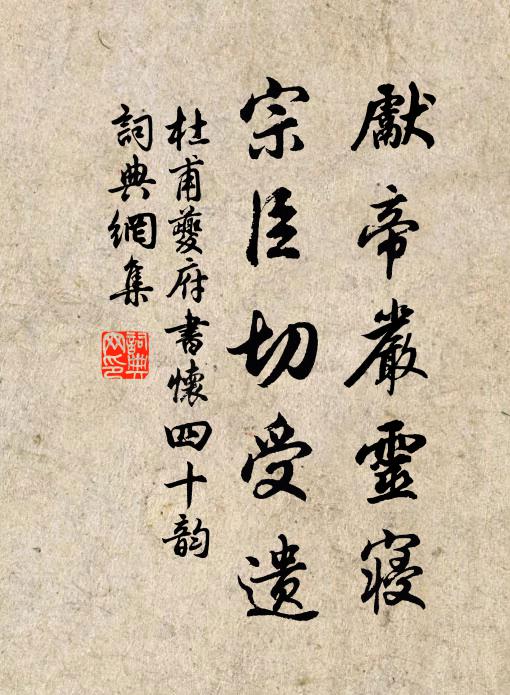 獻帝嚴靈寢
宗臣切受遺
杜甫夔府書懷四十韵
詞典網集
詞典
网印